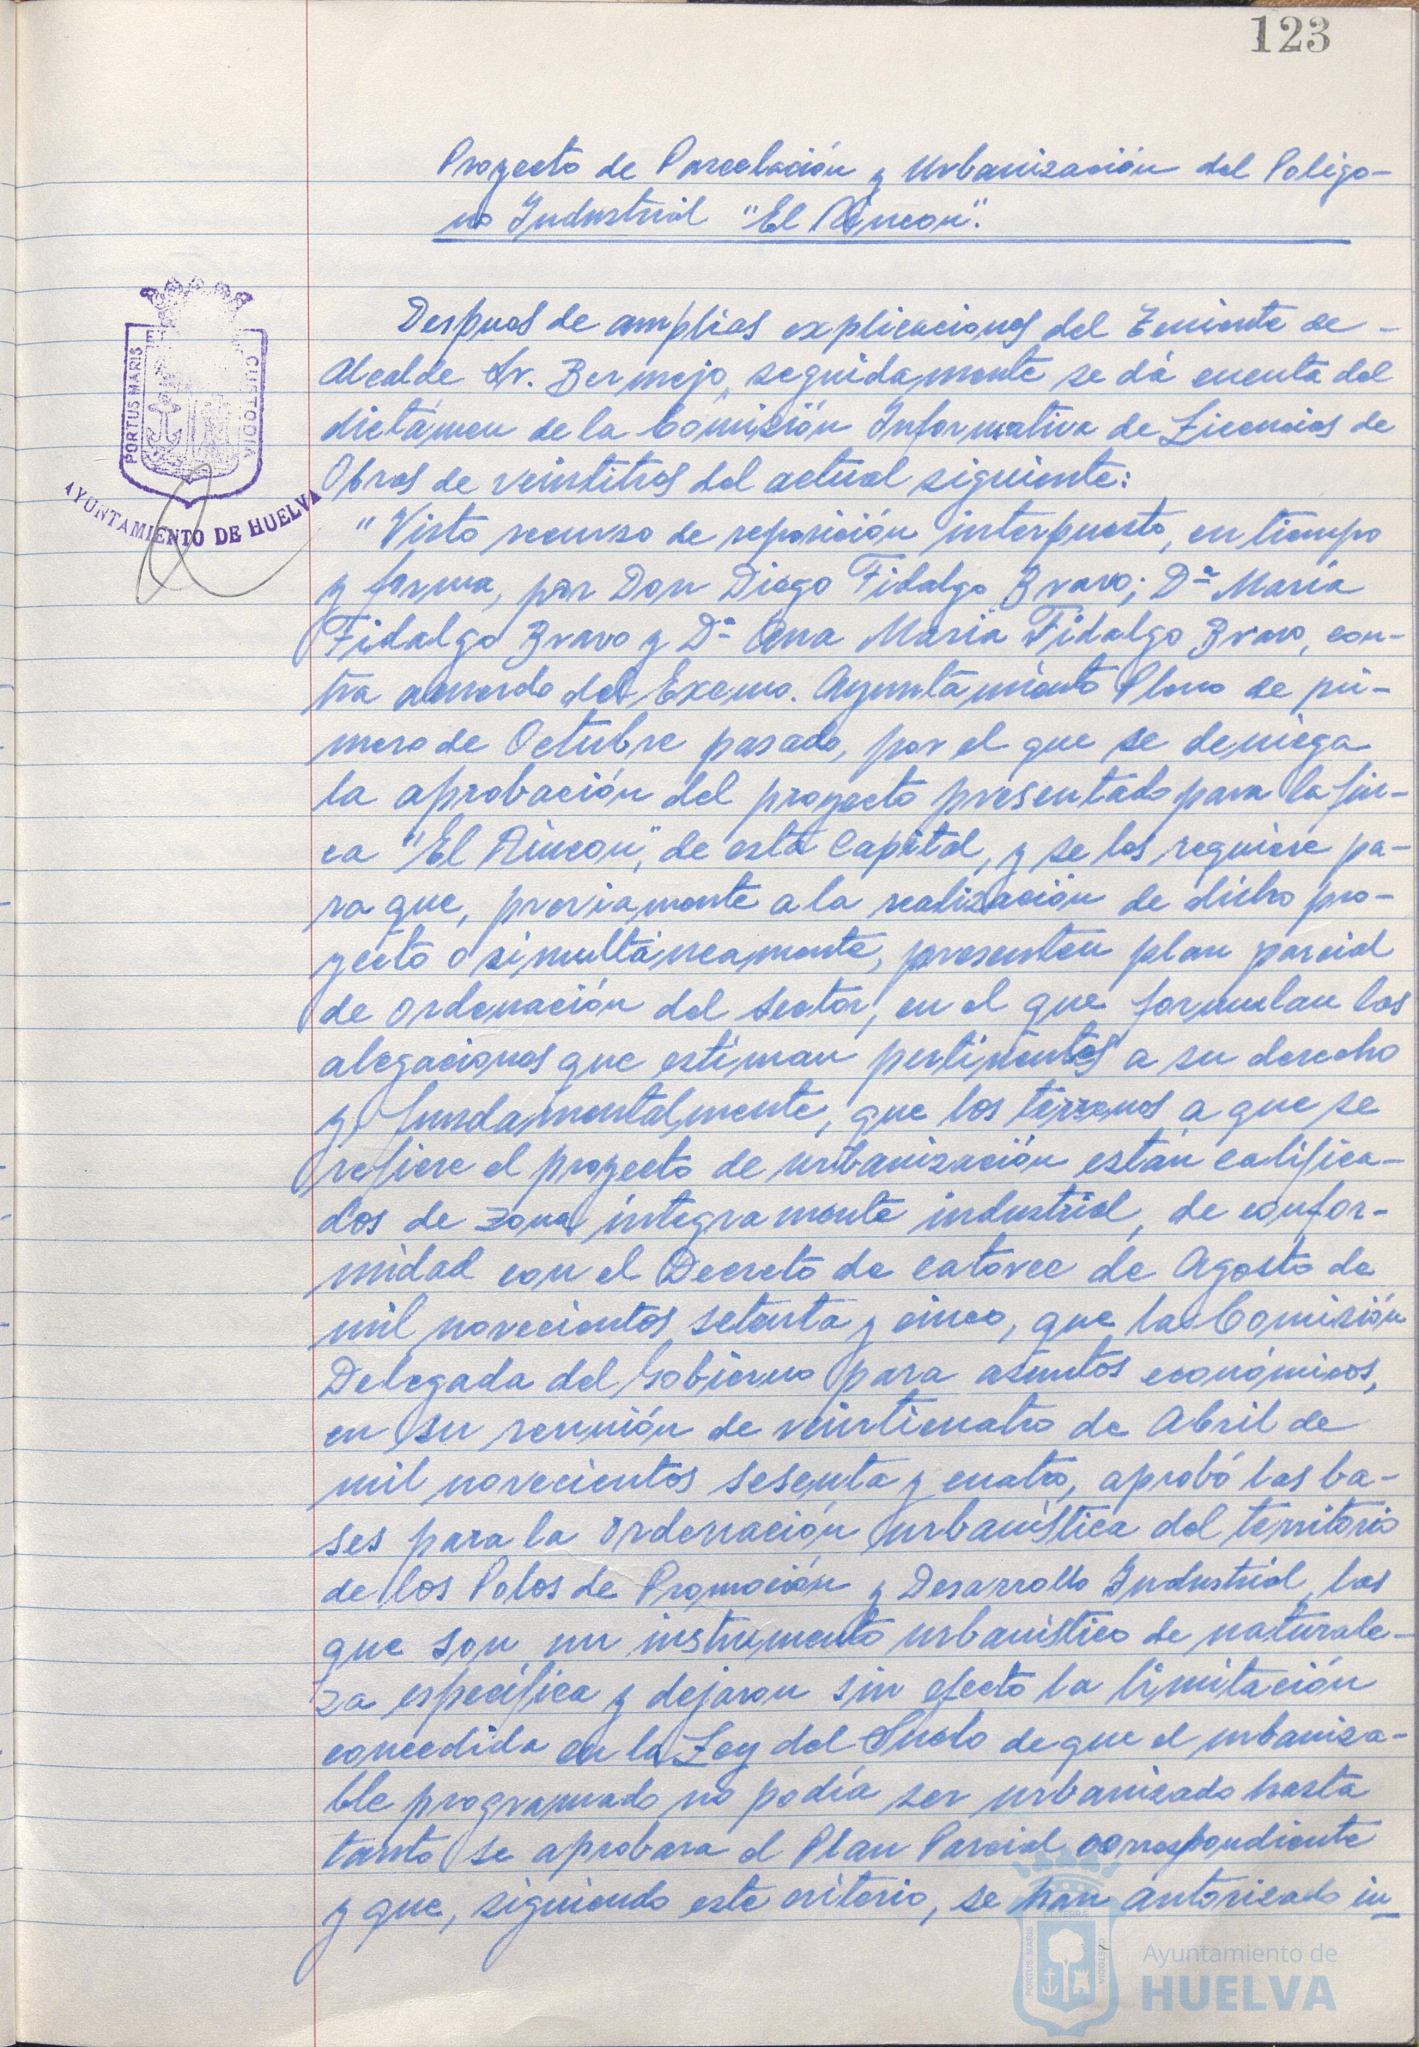 123
Proyecto de Parcelación y Urbanización del Polígo-
no Industrial "El Rincon".
Despues de amplias explicaciones del Teniente de -
Alcalde Sr. Bermejo, seguidamente se dá cuenta del
dictámen de la Comisión Informativa de Licencias de
Obras de veintitres del actual siguiente:
PORTUS MARIS
CUSTODIA
AYUNTAMIENTO DE HUELVA
"Visto recurso de reposición interpuesto, en tiempo
y forma, por Don Diego Fidalgo Bravo; Dª María
Fidalgo Bravo y Dª Ana María Fidalgo Bravo, con-
tra acuerdo del Excmo. Ayuntamiento Pleno de pri-
mero de Octubre pasado, por el que se deniega
la aprobación del proyecto presentado para la fin-
ca "El Rincon", de esta Capital, y se les requiere pa-
ra que, previamente a la realización de dicho pro-
yecto o simultáneamente, presenten plan parcial
de ordenación del sector, en el que formulan las
alegaciones que estiman pertinentes a su derecho
y fundamentalmente, que los terrenos a que se
refiere el proyecto de urbanización están califica-
dos de zona íntegramente industrial, de confor-
midad con el Decreto de catorce de Agosto de
mil novecientos setenta y cinco, que la Comisión
Delegada del Gobierno para asuntos económicos,
en su reunión de veinticuatro de Abril de
mil novecientos sesenta y cuatro, aprobó las ba-
ses para la ordenación urbanística del territorio
de los Polos de Promoción y Desarrollo Industrial, las
que son un instrumento urbanístico de naturale-
za específica y dejaron sin efecto la limitación
concedida en la Ley del Suelo de que el urbaniza-
ble programado no podía ser urbanizado hasta
tanto se aprobara el Plan Parcial correspondiente
y que, siguiendo este criterio, se han autorizado in-
PORTUS MARIS
CUSTODIA
Ayuntamiento de
HUELVA